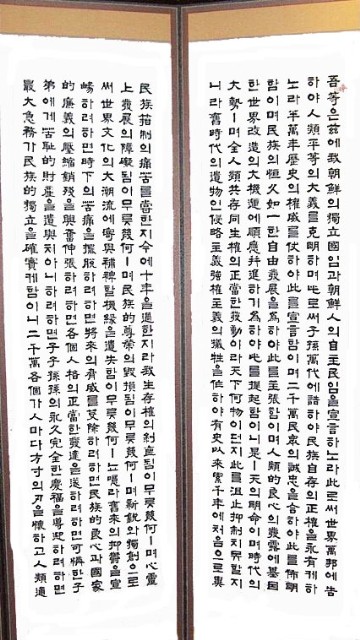 吾等은玆에我朝鮮의獨立國임과朝鮮人의自主民임을宣言하노라此로써世界萬邦에告
하야人類平等의大義를克明하며此로써子孫萬代에誥하야民族自存의正權을永有케하
노라半萬年歷史의權威를仗하야此를宣言함이며二千萬民衆의誠忠을合하야此를佈明
함이며民族의恒久如一한自由發展을爲하야此를主張함이며人類的良心의發露에基因
한世界改造의大機運에順應幷進하기爲하야此를提起함이니是ㅣ天의明命이며時代의
大勢ㅣ며全人類共存同生權의正當한發動이라天下何物이던지此를沮止抑制치못할지
니라舊時代의遺物인侵略主義强權主義의犧牲을作하야有史以來累千年에처음으로異
民族箝制의痛苦를嘗한지今에十年을過한지라我生存權의剝喪됨이무릇幾何ㅣ며心靈
上發展의障礙됨이무릇幾何ㅣ며民族的尊榮의毁損됨이무릇幾何ㅣ며新銳와獨創으로
써世界文化의大潮流에寄與補裨할機緣을遺失함이무릇幾何ㅣ뇨噫라舊來의抑鬱을宣
暢하려하면時下의苦痛을擺脫하려하면將來의脅威를芟除하려하면民族的良心과國家
的廉義의壓縮銷殘을興奮伸張하려하면各個人格의正當한發達을遂하려하면可憐한子
弟에게苦恥的財産을遺與치아니하려하면子子孫孫의永久完全한慶福을導迎하려하면
最大急務가民族的獨立을確實케함이니二千萬各個가人마다方寸의刃을懷하고人類通